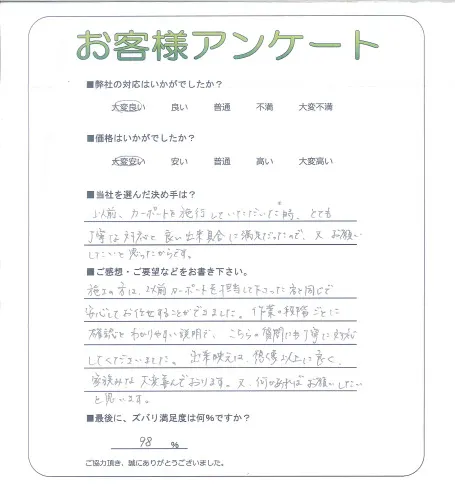 お客様アンケート
■弊社の対応はいかがでしたか？
大変良い 良い 普通 不満 大変不満
■価格はいかがでしたか？
大変安い 安い 普通 高い 大変高い
■当社を選んだ決め手は？
以前、カーポートを施行していただいた時、とても
丁寧な対応と良い出来具合に満足だったので、又お願い
したいと思ったからです。
■ご感想・ご要望などをお書き下さい。
施工の方は、以前カーポートを担当して下さった方と同じで
安心してお任せすることができました。作業の段階ごとに
確認とわかりやすい説明で、こちらの質問にも丁寧に対応
してくださいました。出来映えは、想像以上に良く、
家族みな大変喜んでおります。又、何かあればお願いしたい
と思います。
■最後に、ズバリ満足度は何％ですか？
98 ％
ご協力頂き、誠にありがとうございました。